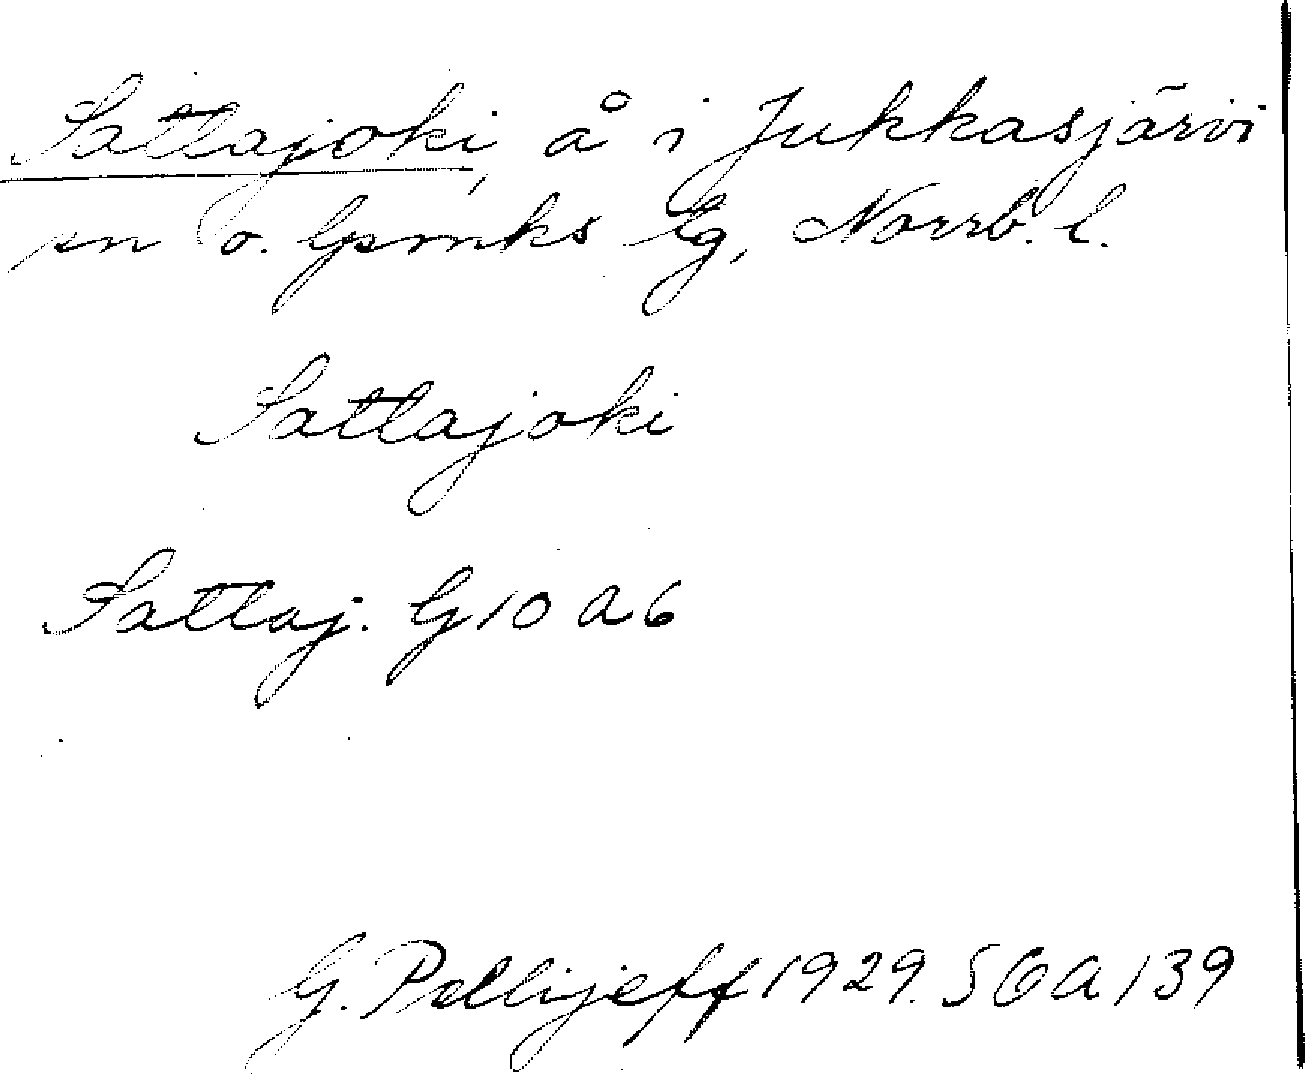 Sattajoki, å i Jukkasjärvi
sn o. lpmks lg, Norrb. l.
Sattajoki
Sattaj. G 10 a 6
G. Pellijeff 1929. SOA 139